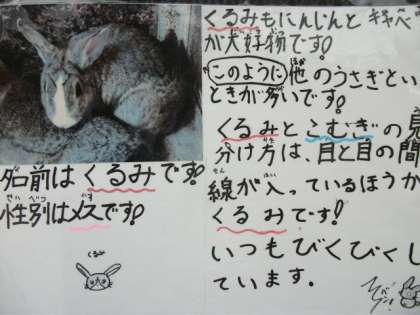 名前はくるみです!
せいべつ
性別はメスです!
くるみ
くるみもにんじんとキャベ
が犬好物です!
このように他のうさぎとい
ときが多いです!
くるみとこむぎの見
分け方は、目と目の間
せん
線が入っているほうか
くるみです!
いつもびくびくし
ています.